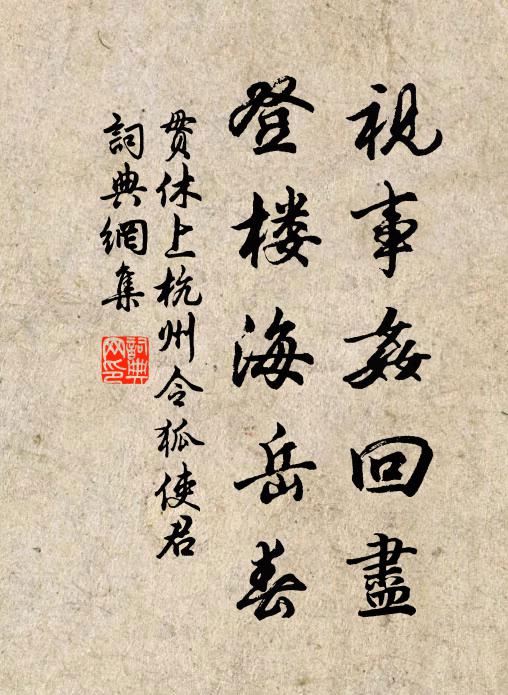 視事姦回盡
登楼海岳春
贯休上杭州令狐使君
詞典網集
詞典网印